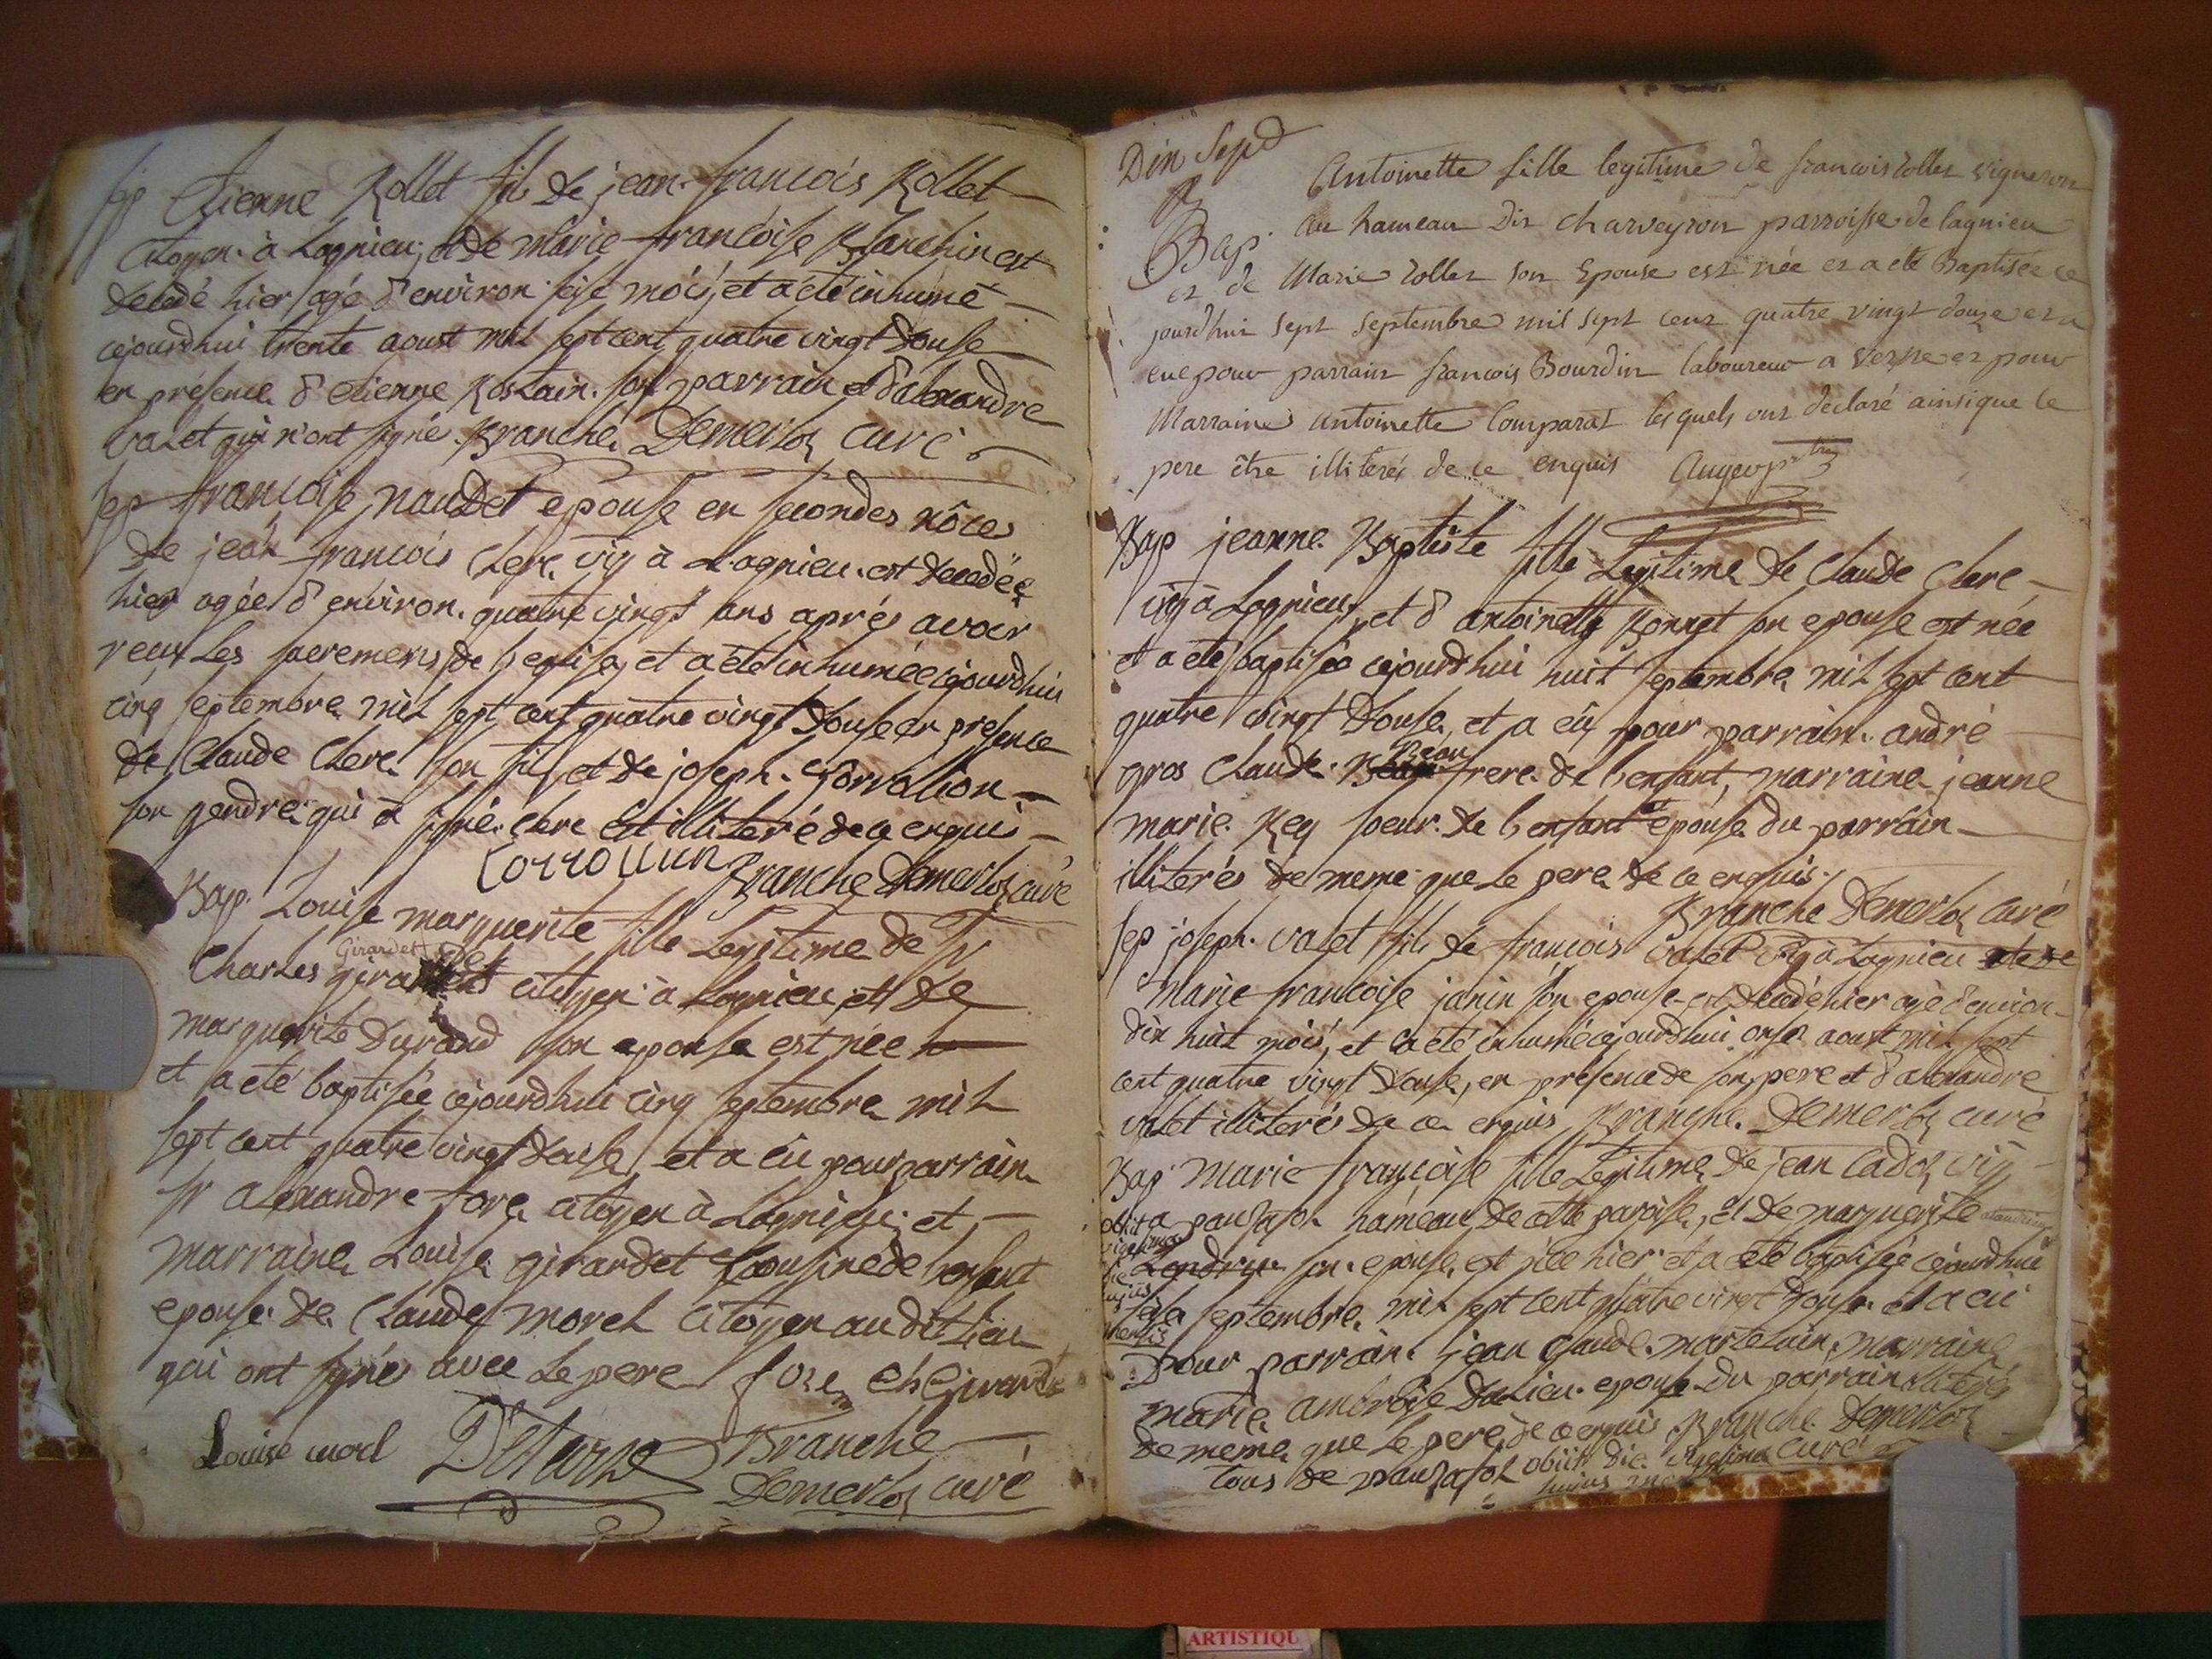 Sep Etienne Rollet fils de jean-françois Rollet
citoyen à Lagnieu, et de marie françoise Blanchin est
décédé hier agé d'environ seise mois, et a eté inhumé
cejourdhui trente aoust mil sept cent quatre vingt douse
en présence d'etienne Rostain son parrain et d'alexandre
valet qui n'ont signé. Branche Demerloz curé
Sep françoise naudet epouse en secondes nôces
de jean françois Clerc vig à Lagnieu est decedée
hier agée d'environ quatre vingt ans aprés avoir
recu les sacremens de l'eglise, et a été inhumée cejourdhui
cinq septembre mil sept cent quatre vingt douse en presence
de Claude Clerc son fils et de joseph
son gendre qui a signé. clerc est illiteré de ce enquis
Branche Demerloz curé
Bap. Louise marguerite fille Legitime de Sr
Girardet
Charles citoyen à Lagnieu et de
marguerite Durand son epouse est née
et a eté baptisée cejourdhui cinq septembre mil
sept cent quatre vingt douse, et a eu pour parrain
Sr alexandre fore citoyen à Lagnieu; et
marraine Louise girardet cousine de l'enfant
epouse de Claude morel citoyen au dit Lieu
qui ont signés avec Le pere fore
Louise morel Branche
Demerloz curé
Antoinette fille legitime de francois rollet vigneron
Bap. au hameau dit charveyron parroisse de lagnieu
et de Marie rollet son Epouse est née et a eté Baptisée ce
jourdhui sept septembre mil sept cent quatre vingt douze et a
eue pour parrain francois Bourdin laboureur a et pour
Marraine antoinette Comparat lesquels ont declaré ainsi que le
pere être illiterés de ce enquis Auger ptre
Bap jeanne Baptiste fille Legitime de Claude Clerc
vig à Lagnieu, et d'antoinette Bonnet son epouse est née
et a eté baptisée cejourdhui huit septembre mil sept cent
quatre vingt douse, et a eû pour parrain andré
gros Claude frere de l'enfant, marraine jeanne
marie Rey soeur de l'enfant et epouse du parrain
illiterés de meme que le pere de ce enquis.
Branche Demerloz curé
Sep joseph valet fils de francois valet vig à Lagnieu et de
Marie francoise janin son epouse est decedé hier agé d'environ
dix huit mois, et a eté inhumé cejourdhui onse aoust mil sept
cent quatre vingt douse, en présence de son pere et d'alexandre
valet illiterés de ce enquis Branche Demerloz curé
Bap Marie françoise fille Legitime de jean Cadoz vig
a pousafol hameau de cette paroisse, et de marguerite
son epouse, est née hier et a eté baptisée cejourdhui
septembre mil sept cent quatre vingt douse et a eu
pour parrain jean Claude martelain, marraine
marie ambroise dulieu epouse du parrain illiterés
de meme que le pere de ce enquis Branche Demerloz
tous de pousafol obiit die vigesima curé
huius